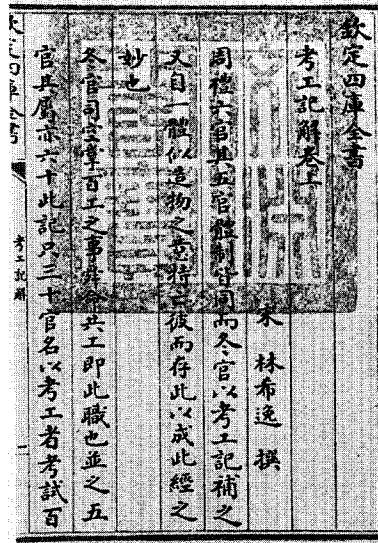 欽定四庫全書
考工記解卷上
宋 林希逸 撰
周禮六官其五官體制皆同而冬官以考工記補之
又自一體似造物之意特亡彼而存此以成此經之
妙也
冬官司空掌百工之事舜命共工即此職也並之五
官其屬亦六十此記只三十官名以考工者考試百
欽定四庫全書
考工記解
一